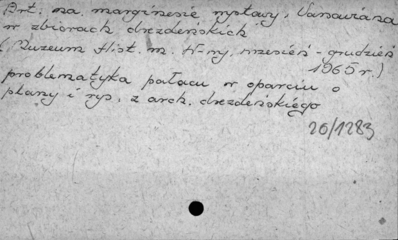 Art: na marginesie wystawy, Varsaviana
w zbiorach drezdeńskich
(Muzeum Hist. m. W-wy, wrzesień - grudzień
1965 r.)
problematyka pałacu w oparciu o
plany i rys. z arch. drezdeńskiego
26/1283